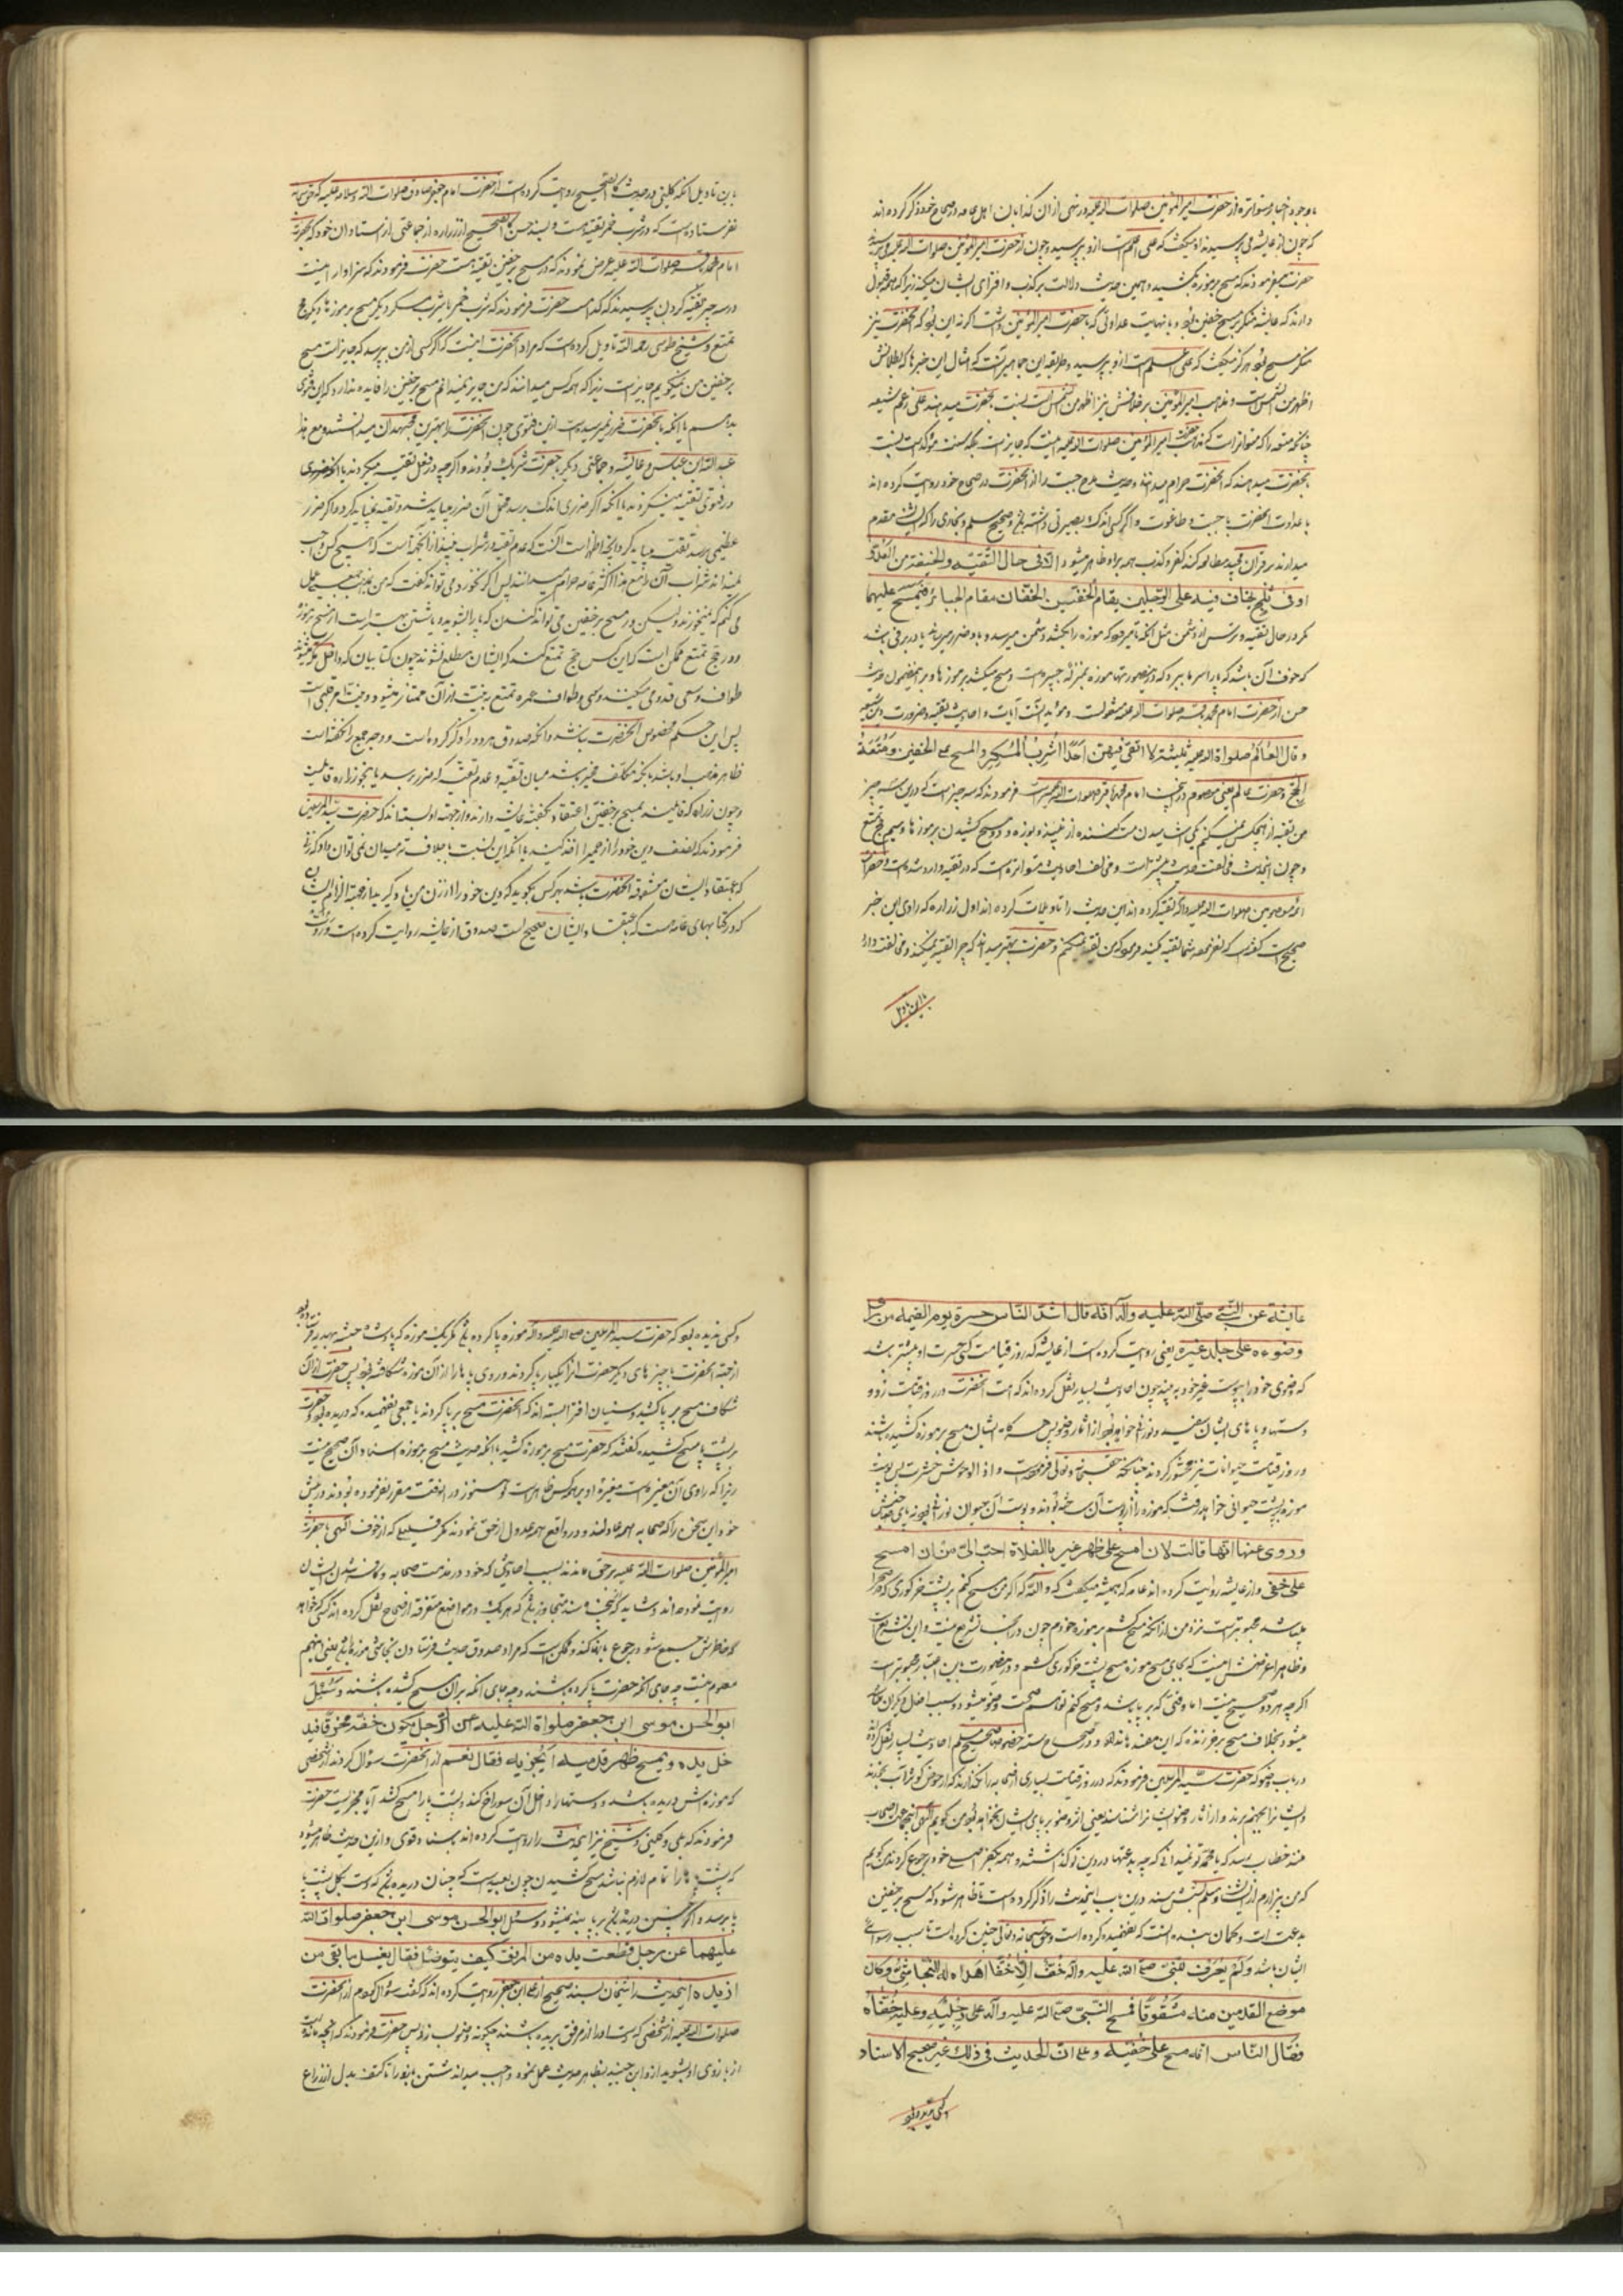 باوجود اخبار متواتره از حضرت امیر المؤمنین صلوات الله علیه در نهی از آن کذابان اهل عامه در صحاح خود ذکر کرده اند
که چون از عایشه می پرسیدند او میگفت که علی اعلم است ازو بپرسید و چون از حضرت امیر المؤمنین صلوات الله علیه می پرسیدند
حضرت میفرمودند که مسح بر موزه مکشید و همین حدیث دلالت بر کذب و افترای ایشان میکند زیرا که همه قبول
دارند که عایشه منکر مسح خفین بود و با نهایت عداوتی که با حضرت امیر المؤمنین داشت اگر نه این بود که آنحضرت نیز
منکر مسح بود هرگز نمیگفت که علی اعلم است ازو بپرسید و طریقه این جماهیر آنست که امثال این خبرها که بطلانش
اظهر من الشمس است و مذهب امیر المؤمنین بر خلافش نیز اظهر من الشمس است نسبت بآنحضرت میدهند علی رغم شیعه
چنانکه متعه را که متواتر است که مذهب حضرت امیر المؤمنین صلوات الله علیه اینست که جایز است بلکه سنت مؤکد است نسبت
بآنحضرت میدهند که آنحضرت حرام میدانند و حدیث مدح جبت را از آنحضرت در صحاح خود روایت کرده اند
با عداوت آنحضرت با جبت و طاغوت و اگر کسی اندک بصیرتی داشته باشد و صحیح مسلم و بخاری را که ایشان مقدم
میدارند بر قرآن مجید مطالعه کند کفر و کذب همه بر او ظاهر میشود الا فی حال التقیة والخیفة من العدو
او فی ثلج یخاف فیه علی الرجلین یقام الخفین الخفان مقام الجبائر فیمسح علیهما
مگر در حال تقیه و ترس از دشمن مثل آنکه تا میرود که موزه را بکشد دشمن میرسد و باو ضرر میرساند یا در برفی باشد
که خوف آن باشد که پا را سرما ببرد که درینصورتها موزه بمنزله جبیره است و مسح میکشد بر موزها و بر این مضمون حدیث
حسن از حضرت امام محمد باقر صلوات الله علیه منقولست و مؤید اینست آیات و احادیث تقیه و ضرورت دین شیعه
و قال العالم صلواة الله علیه ثلثة لا اتقی فیهن احدا شرب المسکر والمسح علی الخفین و متعة
الحج و حضرت عالم یعنی معصوم و درینجا امام محمد باقر صلوات الله علیه است فرمودند که سه چیز است که درین سه چیز
من تقیه از هیچکس نمیکنم یکی آشامیدن مست کننده از نبیذ و بوزه و دوم مسح کشیدن بر موزها و سیم حج تمتع
و چون اینحدیث مخالفت حدیث پیشتر است و مخالف احادیث متواتره است که در تقیه وارد شده است و حضرات
ائمه معصومین صلوات الله علیهم دایم تقیه کرده اند این حدیث را تاویلات کرده اند اول زراره که راوی این خبر
صحیح است گفته است که نفرموده شما تقیه مکنید فرمود که من تقیه نمیکنم و حضرت بهتر میدانند که چرا تقیه نمیکنند و مخالفت دارد
باین تاویل
باین تاویل آنکه کلینی در حدیث کالصحیح روایت کرده است از حضرت امام جعفر صادق صلوات الله و سلامه علیه که حق سبحانه
نفرستاده است که در شرب خمر تقیه هست و بسند حسن کالصحیح از زراره از جماعتی از استادان خود که بحضرت
امام محمد باقر صلوات الله علیه عرض نمودند که در مسح بر خفین تقیه هست حضرت فرمودند که سزاوار نیست
در سه چیز تقیه کردن پرسیدند که کدام است حضرت فرمودند که شرب خمر یا شرب مسکر و دیگر مسح بر موزها و دیگر حج
تمتع و شیخ طوسی رحمه الله تاویل کرده است که مراد آنحضرت اینست که اگر کسی از من بپرسد که جایز است مسح
بر خفین من نمیگویم جایز است زیرا که همه کس میدانند که من جایز نمیدانم مسح بر خفین را فایده ندارد که این فتوی
بدهم با آنکه بآنحضرت ضرر نمیرسیده است ازین فتوی چون آنحضرت را بهترین مجتهدان میدانستند و مع هذا
عبد الله ابن عباس و عایشه و جماعتی دیگر با حضرت شریک بودند و اگر چه در فعل تقیه میکردند
در فتوی تقیه نمیکردند یا آنکه اگر ضرری اندک برسد تحمل آن ضرر میباید شد و تقیه نمیباید کرد و اگر ضرر
عظیمی برسد تقیه میباید کرد و آنچه اظهر است آنست که عدم تقیه در شراب نبیذ از آنجهت است که هیچ کس واجب
نمیداند شراب آن را مع هذا اکثر عامه حرام میدانند پس اگر نخورد می تواند گفت که من بمذهب جمعی عمل
می کنم که نمیخورند و لیکن در مسح بر خفین می تواند کندن که پا را بشوید و پا شستن بهتر است از مسح بر موزه
و در حج تمتع ممکن است که این کس حج تمتع کند که ایشان مطلع نشوند چون که داخل مکه میشود
طواف و سعی قدومی میکنند و سعی و طواف عمره تمتع به نیت از آن ممتاز میشود و نیت امر قلبی است
پس این حکم مخصوص آنحضرت نباشد و آنکه صدوق هر دو را ذکر کرده است و وجه جمع را نگفته است
ظاهر مذهب او باشد بلکه مکلف مخیر باشد میان تقیه و عدم تقیه که ضرر برسد یا بنحو زراره قایلست
و چون زراه که قایلند بمسح بر خفین اعتقاد بگفته عایشه دارند و از جهة او بسته اند که حضرت سید المرسلین
فرمودند که نصف دین خود را از حمیرا اخذ کنید با آنکه این نسبت بخلاف سه میدان نمی توان داد که زنی
که باعتقاد ایشان معشوقه آنحضرت باشد بهر کس بگوید که دین خود را از زن من یاد گیرید از جهة الزام ایشان
که در کتابهای عامه هست که باعتقاد ایشان صحیح است صدوق از عایشه روایت کرده است و روت
عایشة عن النبی صلی الله علیه وآله انه قال اشد الناس حسرة یوم القیمة من رأی
وضوءه علی جلد غیره یعنی روایت کرده است از عایشه که روز قیامت کسی حسرت او بیشتر باشد
که وضوی خود را بپوست غیر خود به بیند چون احادیث بسیار نقل کرده اند که امت آنحضرت در روز قیامت رو و
دستها و پاهای ایشان سفید و نورانی خواهد بود از آثار وضو پس حسرت ایشان مسح بر موزه کشیده باشند
و در روز قیامت حیوانات نیز محشور گردند چنانکه حق سبحانه و تعالی فرموده است و اذا الوحوش حشرت پس پوست
موزه بپشت حیوانی خواهد رفت که موزه را از پوست آن ساخته بودند و پوست آن حیوان نورانی بود نه پای صاحبش
و روی عنها انها قالت لان امسح علی ظهر عیر بالفلاة احب الی من ان امسح
علی خفی و از عایشه روایت کرده اند عامه که همیشه میگفت که و الله که اگر من مسح کنم بر پشت خر گوری که در صحرا
میباشد محبوبتر است نزد من از آنکه مسح کشم بر موزه خودم چون در آنجا تشریع نیست و این تشریع است
و ظاهرا غرضش اینست که بجای مسح موزه مسح پشت خر گوری کشم و در هر صورت باین اعتبار محبوبتر است
اگر چه هر دو صحیح نیست اما وقتی که بر پا باشد و مسح کنم توهم صحت وضو میشود و سبب اضلال دیگران
میشود بخلاف مسح بر خر زنده که این مفسده ندارد و در صحاح سته خصوصا صحیح مسلم احادیث بسیار نقل کرده اند
در باب وضو که حضرت سید المرسلین فرمودند که در روز قیامت بسیاری از صحابه را نگذارند که از حوض کوثر آب بخورند
و ایشان را بجهنم برند و از آثار وضو ایشانرا شناسند یعنی اثر وضو بر پای ایشان نخواهد بود من گویم الهی اینها صحاب
منند خطاب رسد که یا محمد تو نمیدانی که چه بدعتها در دین تو گذاشتند و همه بکفر اصلی خود رجوع کردند من گویم
که من بیزارم از ایشان و مسلم بشش سند درین باب اینحدیث را ذکر کرده است تا ظاهر شود که مسح بر خفین
بدعت است و گمان بنده اینست که نفهمیده کرده است و حق سبحانه و تعالی چنین کرده است تا سبب رسوائی
ایشان باشد ولم یعرف للنبی صلی الله علیه وآله خف الا خفا اهداه له النجاشی و کان
موضع القدمین منه مشقوقا فمسح النبی صلی الله علیه وآله علی رجلیه و علیه خفاه
فقال الناس انه مسح علی خفیه و علی ان الحدیث فی ذلک غیر صحیح الاسناد
و کسی ندیده بود
و کسی ندیده بود که حضرت سید المرسلین صلی الله علیه وآله موزه پا کرده باشد مگر یک موزه که پادشاه حبشه بهدیه فرستاده بود
از جهة آنحضرت با چیزهای دیگر حضرت آنرا یکبار پا کردند و روی پاها را از آن موزه شکافته بود پس حضرت از آن
شکاف مسح بر پا کشید و سنیان افترا بسته اند که آنحضرت مسح بر پا کردند یا جمعی نفهمیده که دریده بود و حضرت
بر پشت پا مسح کشیده گفتند که حضرت مسح بر موزه کشید با آنکه حدیث مسح بر موزه اسناد آن صحیح نیست
زیرا که راوی آن مغیره است مغیره او بر همه کس ظاهر است و هنوز در آنوقت مقرر نفرموده بودند در پیش
خود این سخن را که صحابه همه عادلند و در واقع همه عدول از حق نمودند مگر قلیلی که از خوف الهی با حضرت
امیر المؤمنین صلوات الله علیه بر حق ماندند بسبب احادیثی که خود در مذمت صحابه و کافر شدن ایشان
روایت نموده اند و شاید که از پنجاه سند متجاوز باشد که هر یک در مواضع متفرقه از صحاح نقل کرده اند که کسی که خواهد
که خاطرش جمع شود رجوع بانها کند و ممکن است که مراد صدوق حدیث فرستادن نجاشی موزه را باشد یعنی اینهم
معلوم نیست چه جای آنکه حضرت پا کرده باشند و چه جای آنکه بر آن مسح کشیده باشند و سئل
ابو الحسن موسی ابن جعفر صلواة الله علیه عن الرجل یکون خفه مخرقا فیدخل
یده و یمسح ظهر قدمیه ایجزیه فقال نعم از آنحضرت سؤال کردند از شخصی
که موزه اش دریده باشد و دستها را داخل آن سوراخ کند و پشت پا را مسح کشد آیا مجزیست حضرت
فرمودند که بلی و کلینی و شیخ نیز اینحدیث را روایت کرده اند بسناد قوی و ازین حدیث ظاهر میشود
که پشت پا را تمام لازم نباشد مسح کشیدن چون بعید است که چنان دریده باشد که دست بکل پشت
پا برسد و اگر چنین دریده باشد بر پا بند نمیشود و سئل ابو الحسن موسی ابن جعفر صلوات الله
علیهما عن رجل قطعت یده من المرفق کیف یتوضأ فقال یغسل ما بقی من
عضده اینحدیث را شیخان بسند صحیح از علی ابن جعفر روایت کرده اند که گفت سؤال کردم از آنحضرت
صلوات الله علیه از شخصی که دست او را از مرفق بریده باشند چگونه وضو بسازد پس حضرت فرمودند که آنچه مانده است
از بازوی او بشوید از و ابن جنید بظاهر حدیث عمل نموده واجب میداند شستن بازو را تا کتف بدل از ذراع